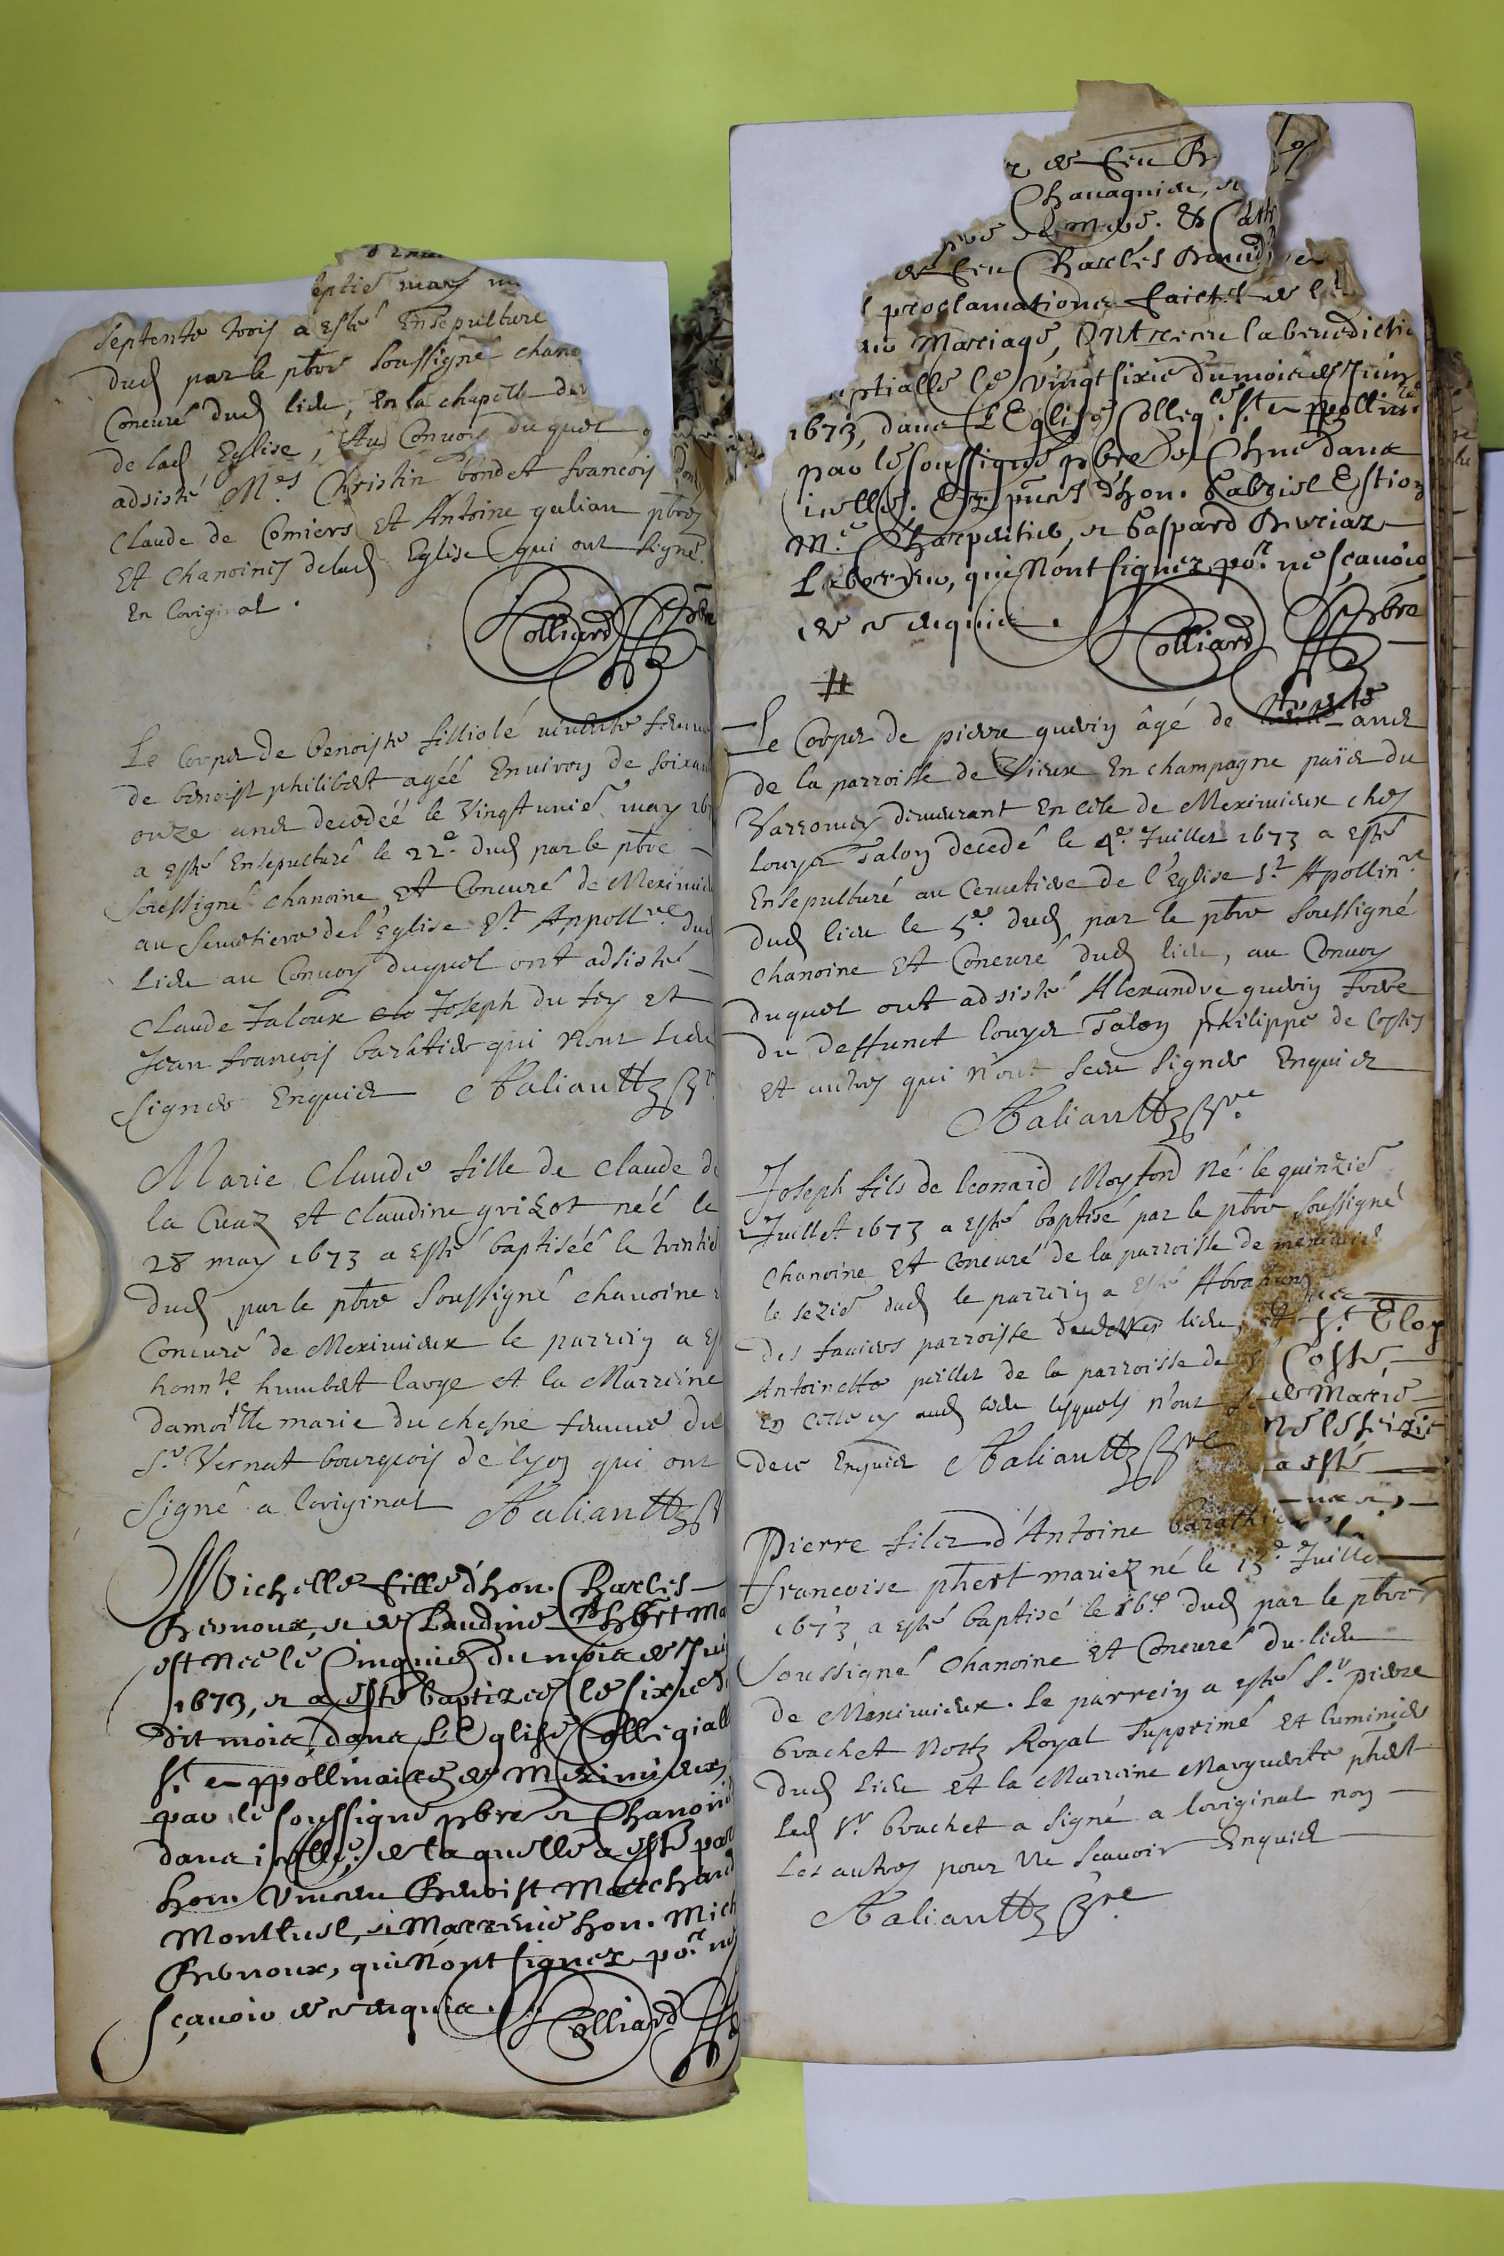 eptie may
septente trois a esté Ensepulturé
dud par le pbre soussigné chano
Concuré dud lieu, En la chapelle de
de lad Eglise, Au Convoy duquel o
adsisté Mes Christin bondet francois
Claude de Comiers Et Antoine galian pbres
Et chanoines delad Eglise qui ont signé
En loriginal .
Colliard pbre
Le Corps de benoiste filliolé
de benoist philibert agéé Environ de soixan
onze ans decedéé le Vingt unie may 16
a esté Ensepulturé le 22e dud par le pbre
soussigné chanoine Et Concuré de Meximie
au semetiere de l'Eglise St Appollre dud
Lieu au Convoy duquel ont adsisté
Claude Jaloux Joseph du fey et
Jean francois barlatier qui n'ont sceu
signer Enquis Aaliaultz
Marie Claude fille de Claude de
la Cuaz et Claudine grizot néé le
28 may 1673 a esté baptiséé le trentie
dud par le pbre soussigné chanoine
Concuré de Meximieux le parrein a es
honnte humbert lavge et la Marreine
damoille marie du chesne femme du
sr Vernat bourgeois de lyon qui ont
signé a loriginal Aaliaultz
Michelle fille d'hon. Charles
Bernoux, et de Claudine Phbert Ma
est née le Cinquies du mois de Jui
1673, et a esté baptizée le sixie du
dit mois, dans L'Eglise Collegialle
St Appollinaire de Meximieux,
par le soussigné pbre et Chanoine
dans icelle, de laquelle a esté par
hon. Vincen Benoist Marchand
Montluel, et Marreine hon. Mich
Bernoux, qui n'ont signez por ne
sçavoir de ce enquis. Colliard
de feu
Chavagnieu, et
de feu Charles
proclamations faictes de l
Mariage, Ont receu la benedictio
uptialle le vingt sixie du mois de Juin
1673, dans L'Eglise Collegle St Appollinre
par le soussigné pbre et Chne dans
icelle. Ez pnces d'hon. Gabriel Estion
Me Charpentier, et Gaspard
Laboureur, qui n'ont signez por ne sçavoir
de ce enquis. Colliard pbre
Le Corps de pierre guerin âgé de trente ans
de la parroisse de Vieux En champagne païs du
Varromey demeurant En celle de Meximieux ches
Louys Talon decedé le 4e Juillet 1673 a esté
Ensepulturé au Cemetiere de l'Eglise St Apollinre
dud lieu le 5e dud par le pbre soussigné
chanoine Et Concuré dud lieu, au Convoy
duquel ont adsisté Alexandre guerin frere
du deffunct louys Talon philippe de Costes
et autres qui n'ont sceu signer Enquis
Aaliaultz pbre
Joseph fils de leonard Moyford né le quinzie
Juillet 1673 a esté baptisé par le pbre soussigné
chanoine Et Concuré de la parroisse de meximieux
le sezie dud le parrein a esté Abraham
des faviers parroisse lieu, et
Antoinette peillet de la parroisse de
lesquels n'ont
dece Enquis Aaliaultz pbre
St Eloy
Coste,
de Marie
né le seizie
a esté
Pierre filz d'Antoine
francoise phert mariez né le 15e Juillet
1673 a esté baptisé le 16e dud par le pbre
soussigné chanoine Et Concuré du lieu
de Meximieux. le parrein a esté Sr pierre
brachet Nottz Royal supprimé Et luminier
dud Lieu et la Marreine Marguerite phert
led Sr brachet a signé a loriginal non
les autres pour ne scavoir Enquis
Aaliaultz pbre